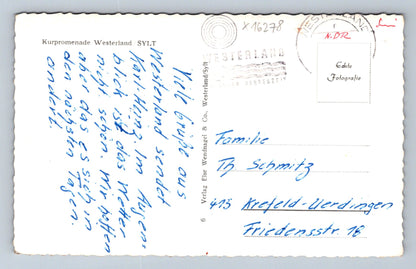 Kurpromenade Westerland SYLT
x 16278
WESTERLAND
WESTERLAND
NDR
Echte
Fotografie
Viele Grüße aus
Westerland sendet
Karl-Heinz. Im Augen-
blick ist das Wetter
nicht schön. Wir hoffen
aber das es sich in
den nächsten Tagen
ändert.
6 Verlag Else Wendnagel & Co., Westerland/Sylt
Familie
Th Schmitz
415 Krefeld-Uerdingen
Friedensstr. 16